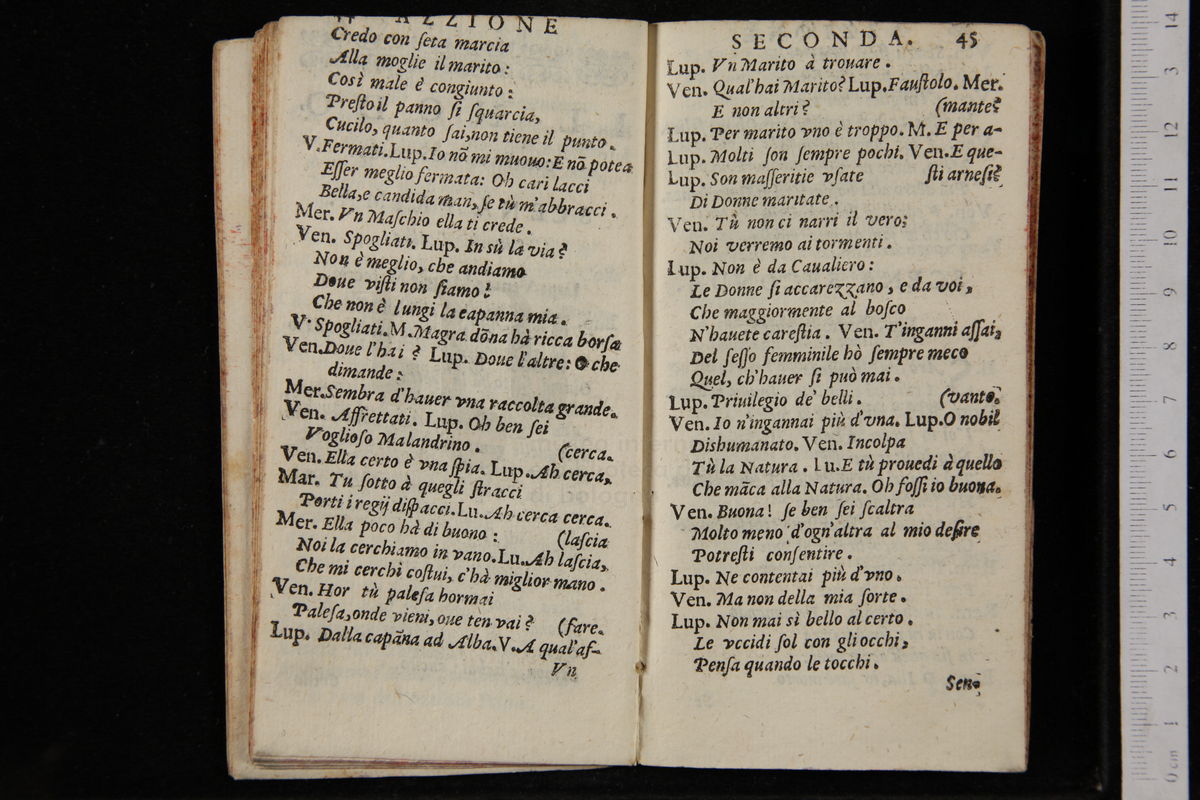 44 AZZIONE
Credo con ſeta marcia
Alla moglie il marito:
Così male è congiunto:
Preſto il panno ſi ſquarcia,
Cucilo, quanto ſai, non tiene il punto.
V. Fermati. Lup. Io nõ mi muouo: E nõ potea
Eſſer meglio fermata: Oh cari lacci
Bella, e candida man, ſe tù m'abbracci.
Mer. Vn Maſchio ella ti crede.
Ven. Spogliati. Lup. In sù la via?
Non è meglio, che andiamo
Doue viſti non ſiamo?
Che non è lungi la capanna mia.
V. Spogliati. M. Magra dõna hà ricca borſa
Ven. Doue l'hai? Lup. Doue l'altre: O che
dimande:
Mer. Sembra d'hauer vna raccolta grande.
Ven. Affrettati. Lup. Oh ben ſei
Voglioſo Malandrino. (cerca.
Ven. Ella certo è vna ſpia. Lup. Ah cerca,
Mar. Tu ſotto à quegli ſtracci
Porti i regij diſpacci. Lu. Ah cerca cerca.
Mer. Ella poco hà di buono: (laſcia
Noi la cerchiamo in vano. Lu. Ah laſcia,
Che mi cerchi coſtui, c'hà miglior mano.
Ven. Hor tù paleſa hormai
Paleſa, onde vieni, oue ten vai? (fare.
Lup. Dalla capãna ad Alba. V. A qual'af-
Vn
SECONDA. 45
Lup. Vn Marito à trouare.
Ven. Qual'hai Marito? Lup. Fauſtolo. Mer.
E non altri? (mante?
Lup. Per marito vno è troppo. M. E per a-
Lup. Molti ſon ſempre pochi. Ven. E que-
Lup. Son maſſeritie vſate ſti arneſi?
Di Donne maritate.
Ven. Tù non ci narri il vero:
Noi verremo ai tormenti.
Lup. Non è da Caualiero:
Le Donne ſi accarezzano, e da voi,
Che maggiormente al boſco
N'hauete careſtia. Ven. T'inganni aſſai,
Del ſeſſo femminile hò ſempre meco
Quel, ch'hauer ſi può mai.
Lup. Priuilegio de' belli. (vanto.
Ven. Io n'ingannai più d'vna. Lup. O nobil
Dishumanato. Ven. Incolpa
Tù la Natura. Lu. E tù prouedi à quello
Che mãca alla Natura. Oh foſſi io buona.
Ven. Buona! ſe ben ſei ſcaltra
Molto meno d'ogn'altra al mio deſire
Potreſti conſentire.
Lup. Ne contentai più d'vno.
Ven. Ma non della mia ſorte.
Lup. Non mai sì bello al certo.
Le vccidi ſol con gli occhi,
Penſa quando le tocchi.
Sen-